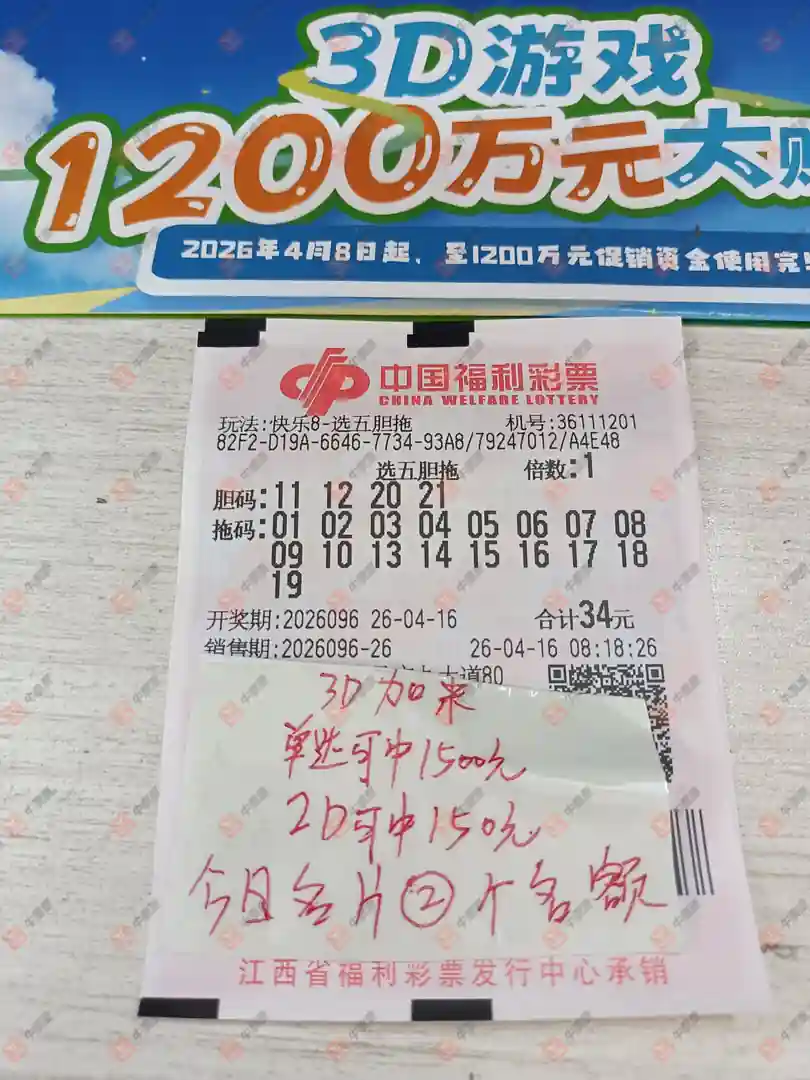 3D游戏
1200万元大
2026年4月8日起、至1200万元促销资金使用完
中国福利彩票
CHINA WELFARE LOTTERY
玩法:快乐8-选五胆拖 机号:36111201
82F2-D19A-6646-7734-93A8/79247012/A4E48
选五胆拖 倍数:1
胆码:11 12 20 21
拖码:01 02 03 04 05 06 07 08
09 10 13 14 15 16 17 18
19
开奖期:2026096 26-04-16 合计34元
销售期:2026096-26 26-04-16 08:18:26
大道80
3D加来
单选可中1500元
2D可中150元
今日名片②个名额
江西省福利彩票发行中心承销